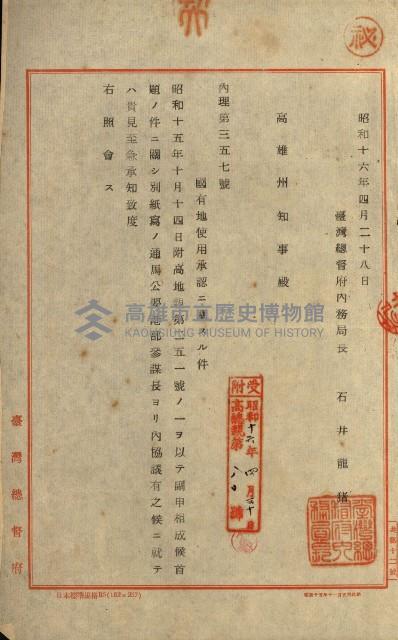 祕
昭和十六年四月二十八日
臺灣總督府內務局長 石井龍猪
高雄州知事殿
內理第三五七號
國有地使用承認ニ關スル件
昭和十五年十月十四日附高地第二五一號ノ一ヲ以テ副申相成候首
題ノ件ニ關シ別紙寫ノ通馬公要港部參謀長ヨリ內協議有之候ニ就テ
ハ貴見至急承知致度
右照會ス
受附
昭和十六年四月三十日
第八〇號
臺灣總督府
高雄市立歷史博物館
KAOHSIUNG MUSEUM OF HISTORY
日本標準規格B5(182×257)